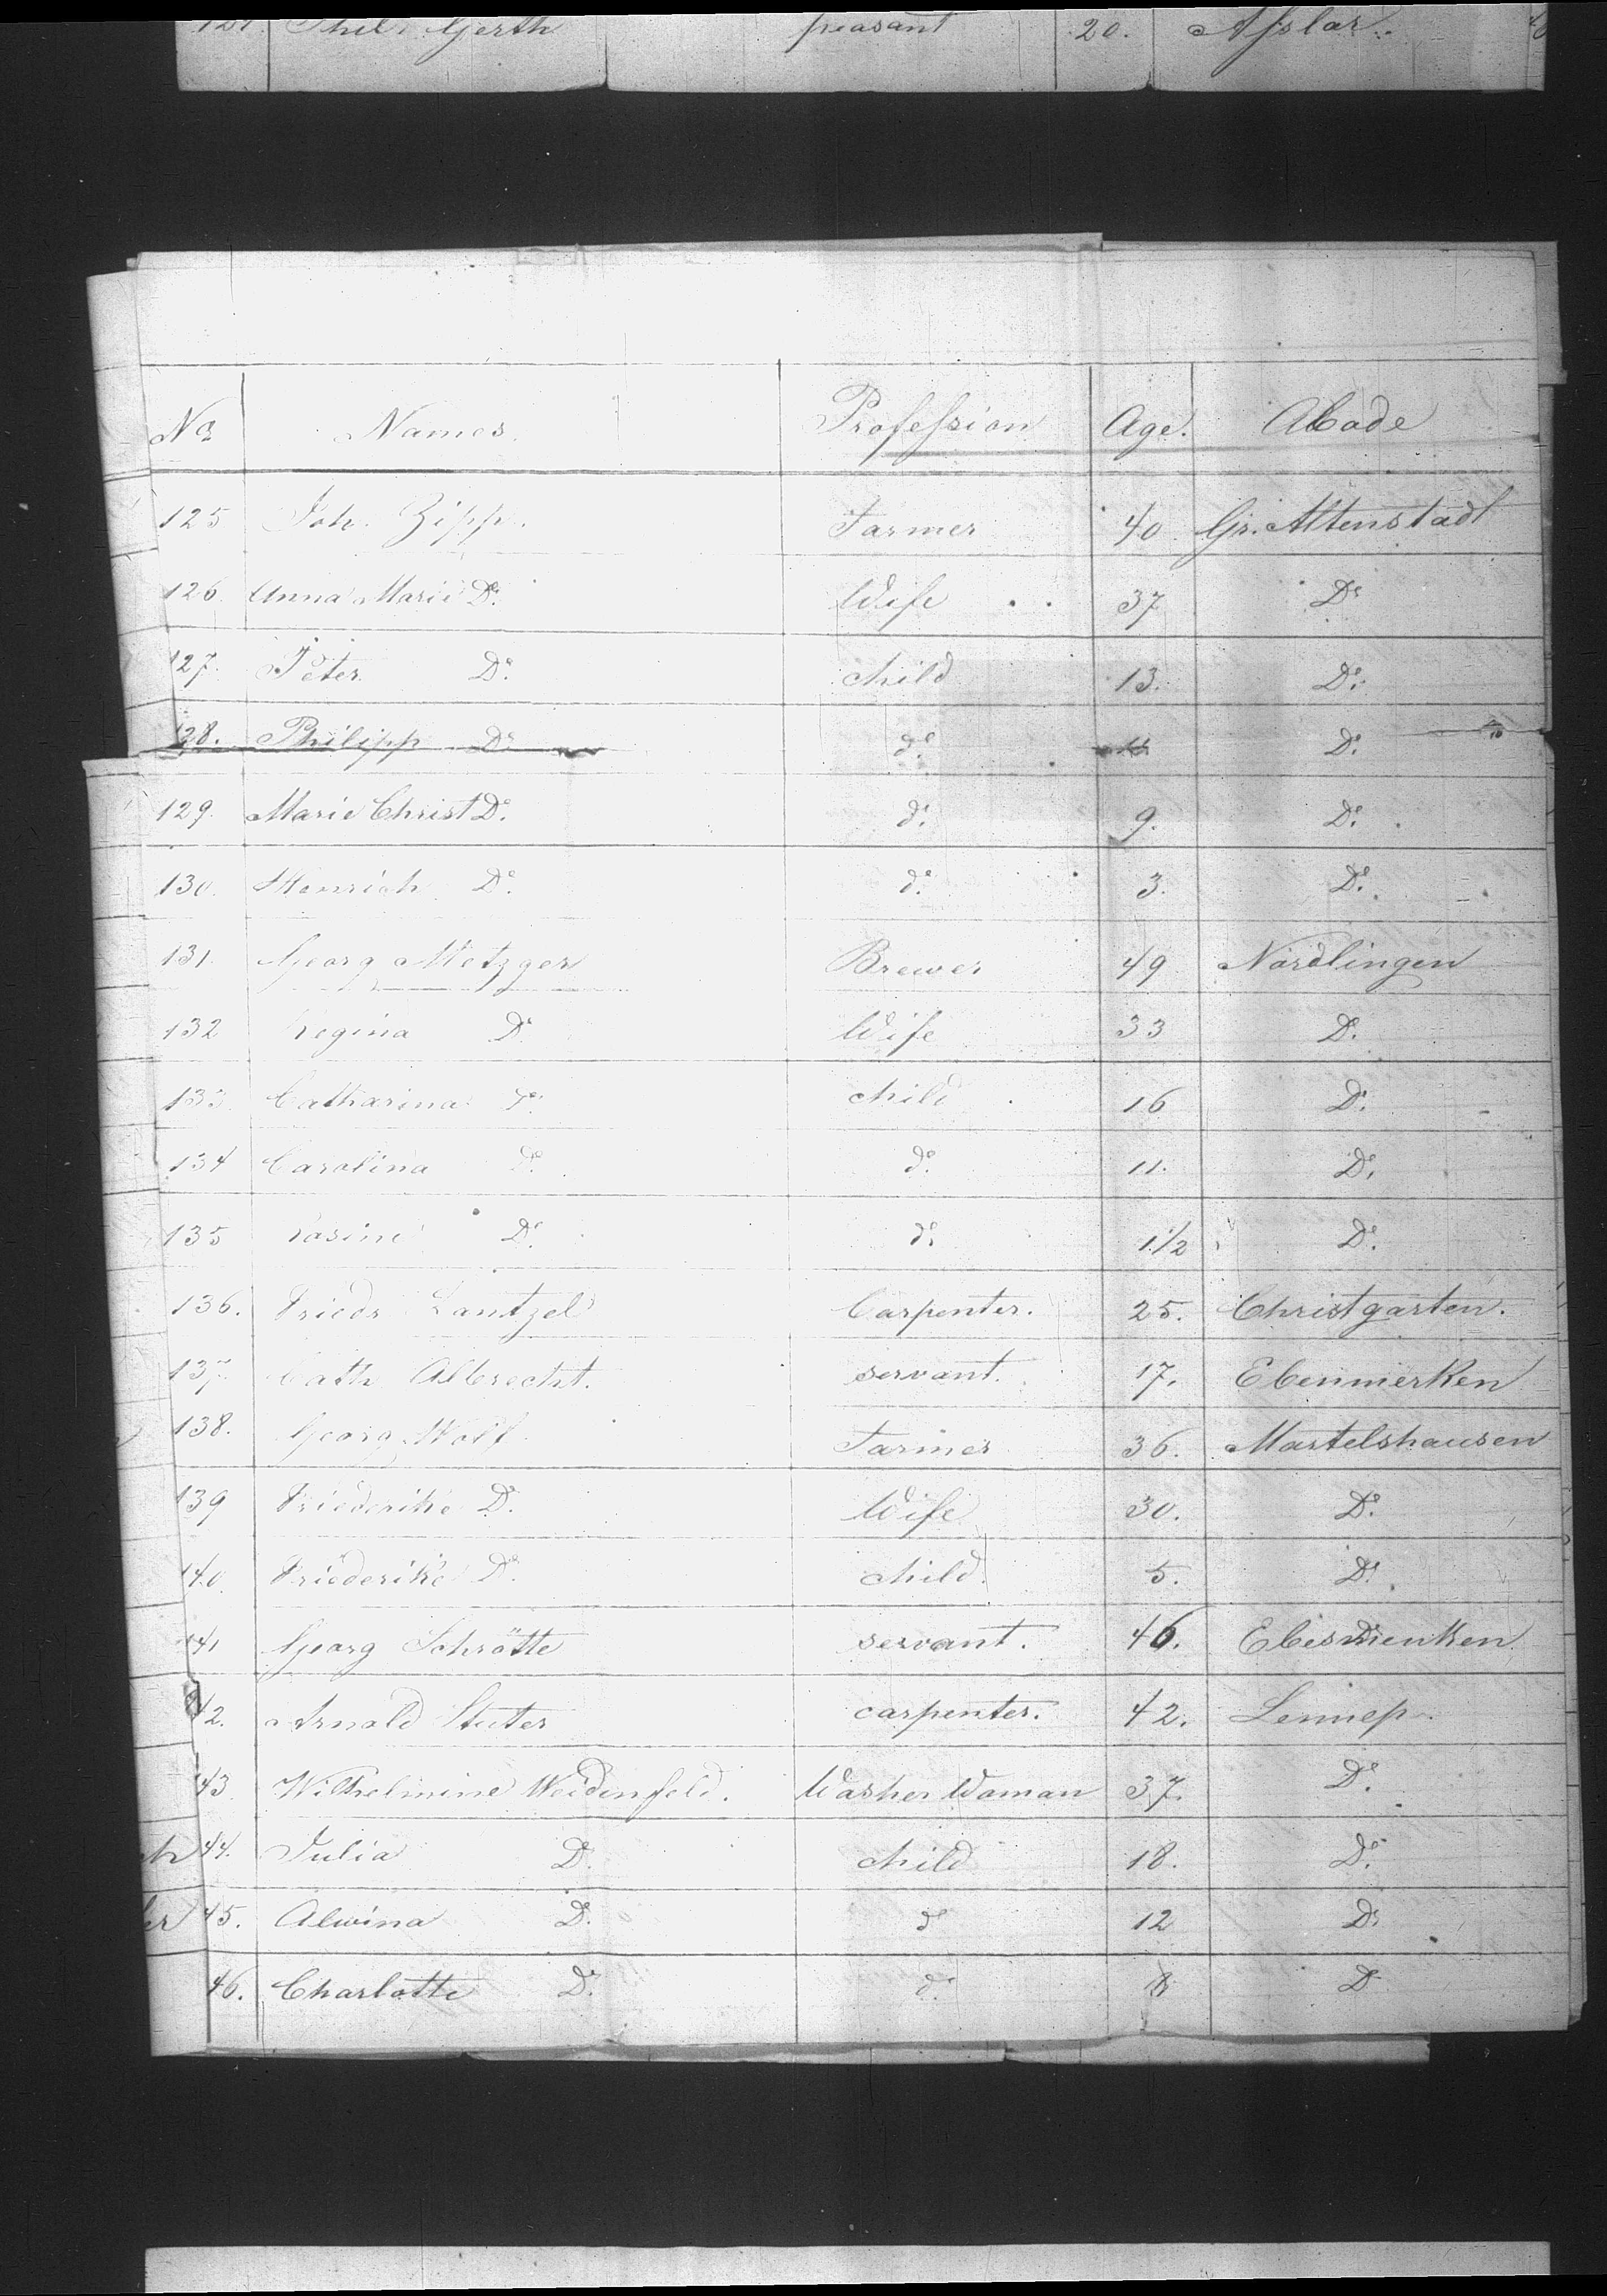 Gerth peasant 20. Asslar.
No Names. Profession Age. Abode
125 Joh. Zipp. Farmer 40 Gr. Altenstadt
126. Anna Marie Do. Wife 37 Do
127. Peter Do. child 13. Do.
128. Philipp Do do. Do.
129. Marie Christ Do. do. 9. Do.
130. Heinrich Do. do. 3. Do.
131. Georg Metzger Brewer 49 Nördlingen
132 Regina Do. Wife 33 Do.
133. Catharina Do. child 16 Do.
134 Carolina Do. do. 11. Do.
135 Rosine Do. do. 1 1/2 Do.
136. Friedr Lantzel Carpenter. 25. Christgarten.
137. Cath Albrecht. servant. 17. Ebermerken
138. Georg Wolf Farmer 36. Martelshausen
139 Friederike Do. Wife 30. Do.
140. Friederike Do. child. 5. Do.
141 Georg Schrötte servant. 46.
42. Arnold Stuter carpenter. 42. Lennep.
43. Wilhelmine Weidenfeld. Washer Woman 37. Do.
44. Julia Do. child 18. Do.
45. Alwina Do. do 12 Do
46. Charlotte Do. do. 8 Do